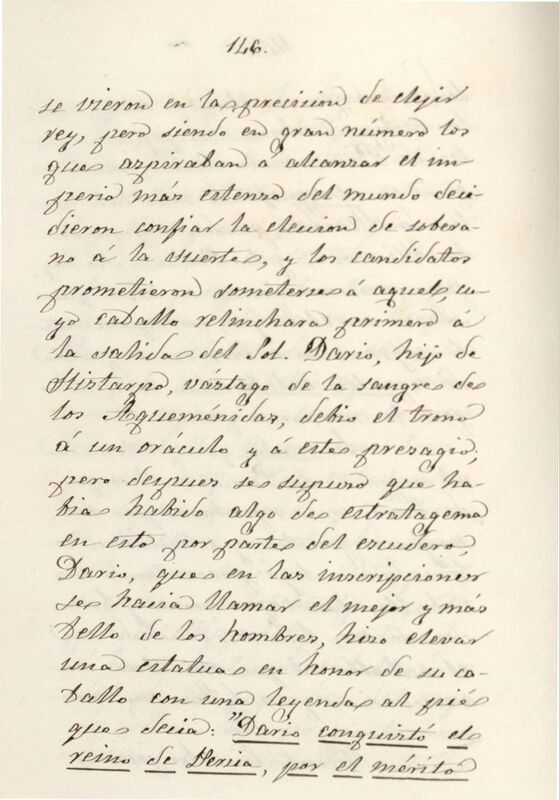 146.
se vieron en la precision de elejir
rey, pero siendo en gran número los
que aspiraban á alcanzar el im-
perio más estenso del mundo deci-
dieron confiar la eleccion de sobera-
no á la suerte, y los candidatos
prometieron someterse á aquel, cu-
yo caballo relinchara primero á
la salida del Sol. Dario, hijo de
Histarpo, vástago de la sangre de
los Aqueménidas, debio el trono
á un oráculo y á este presagio;
pero despues se supuso que ha-
bia habido algo de estratagema
en esto por parte del escudero,
Dario, que en las inscripciones
se hacia llamar el mejor y más
bello de los hombres, hizo elevar
una estatua en honor de su ca-
ballo con una leyenda al pié
que decia: "Dario conquistó el
reino de Persia, por el mérito